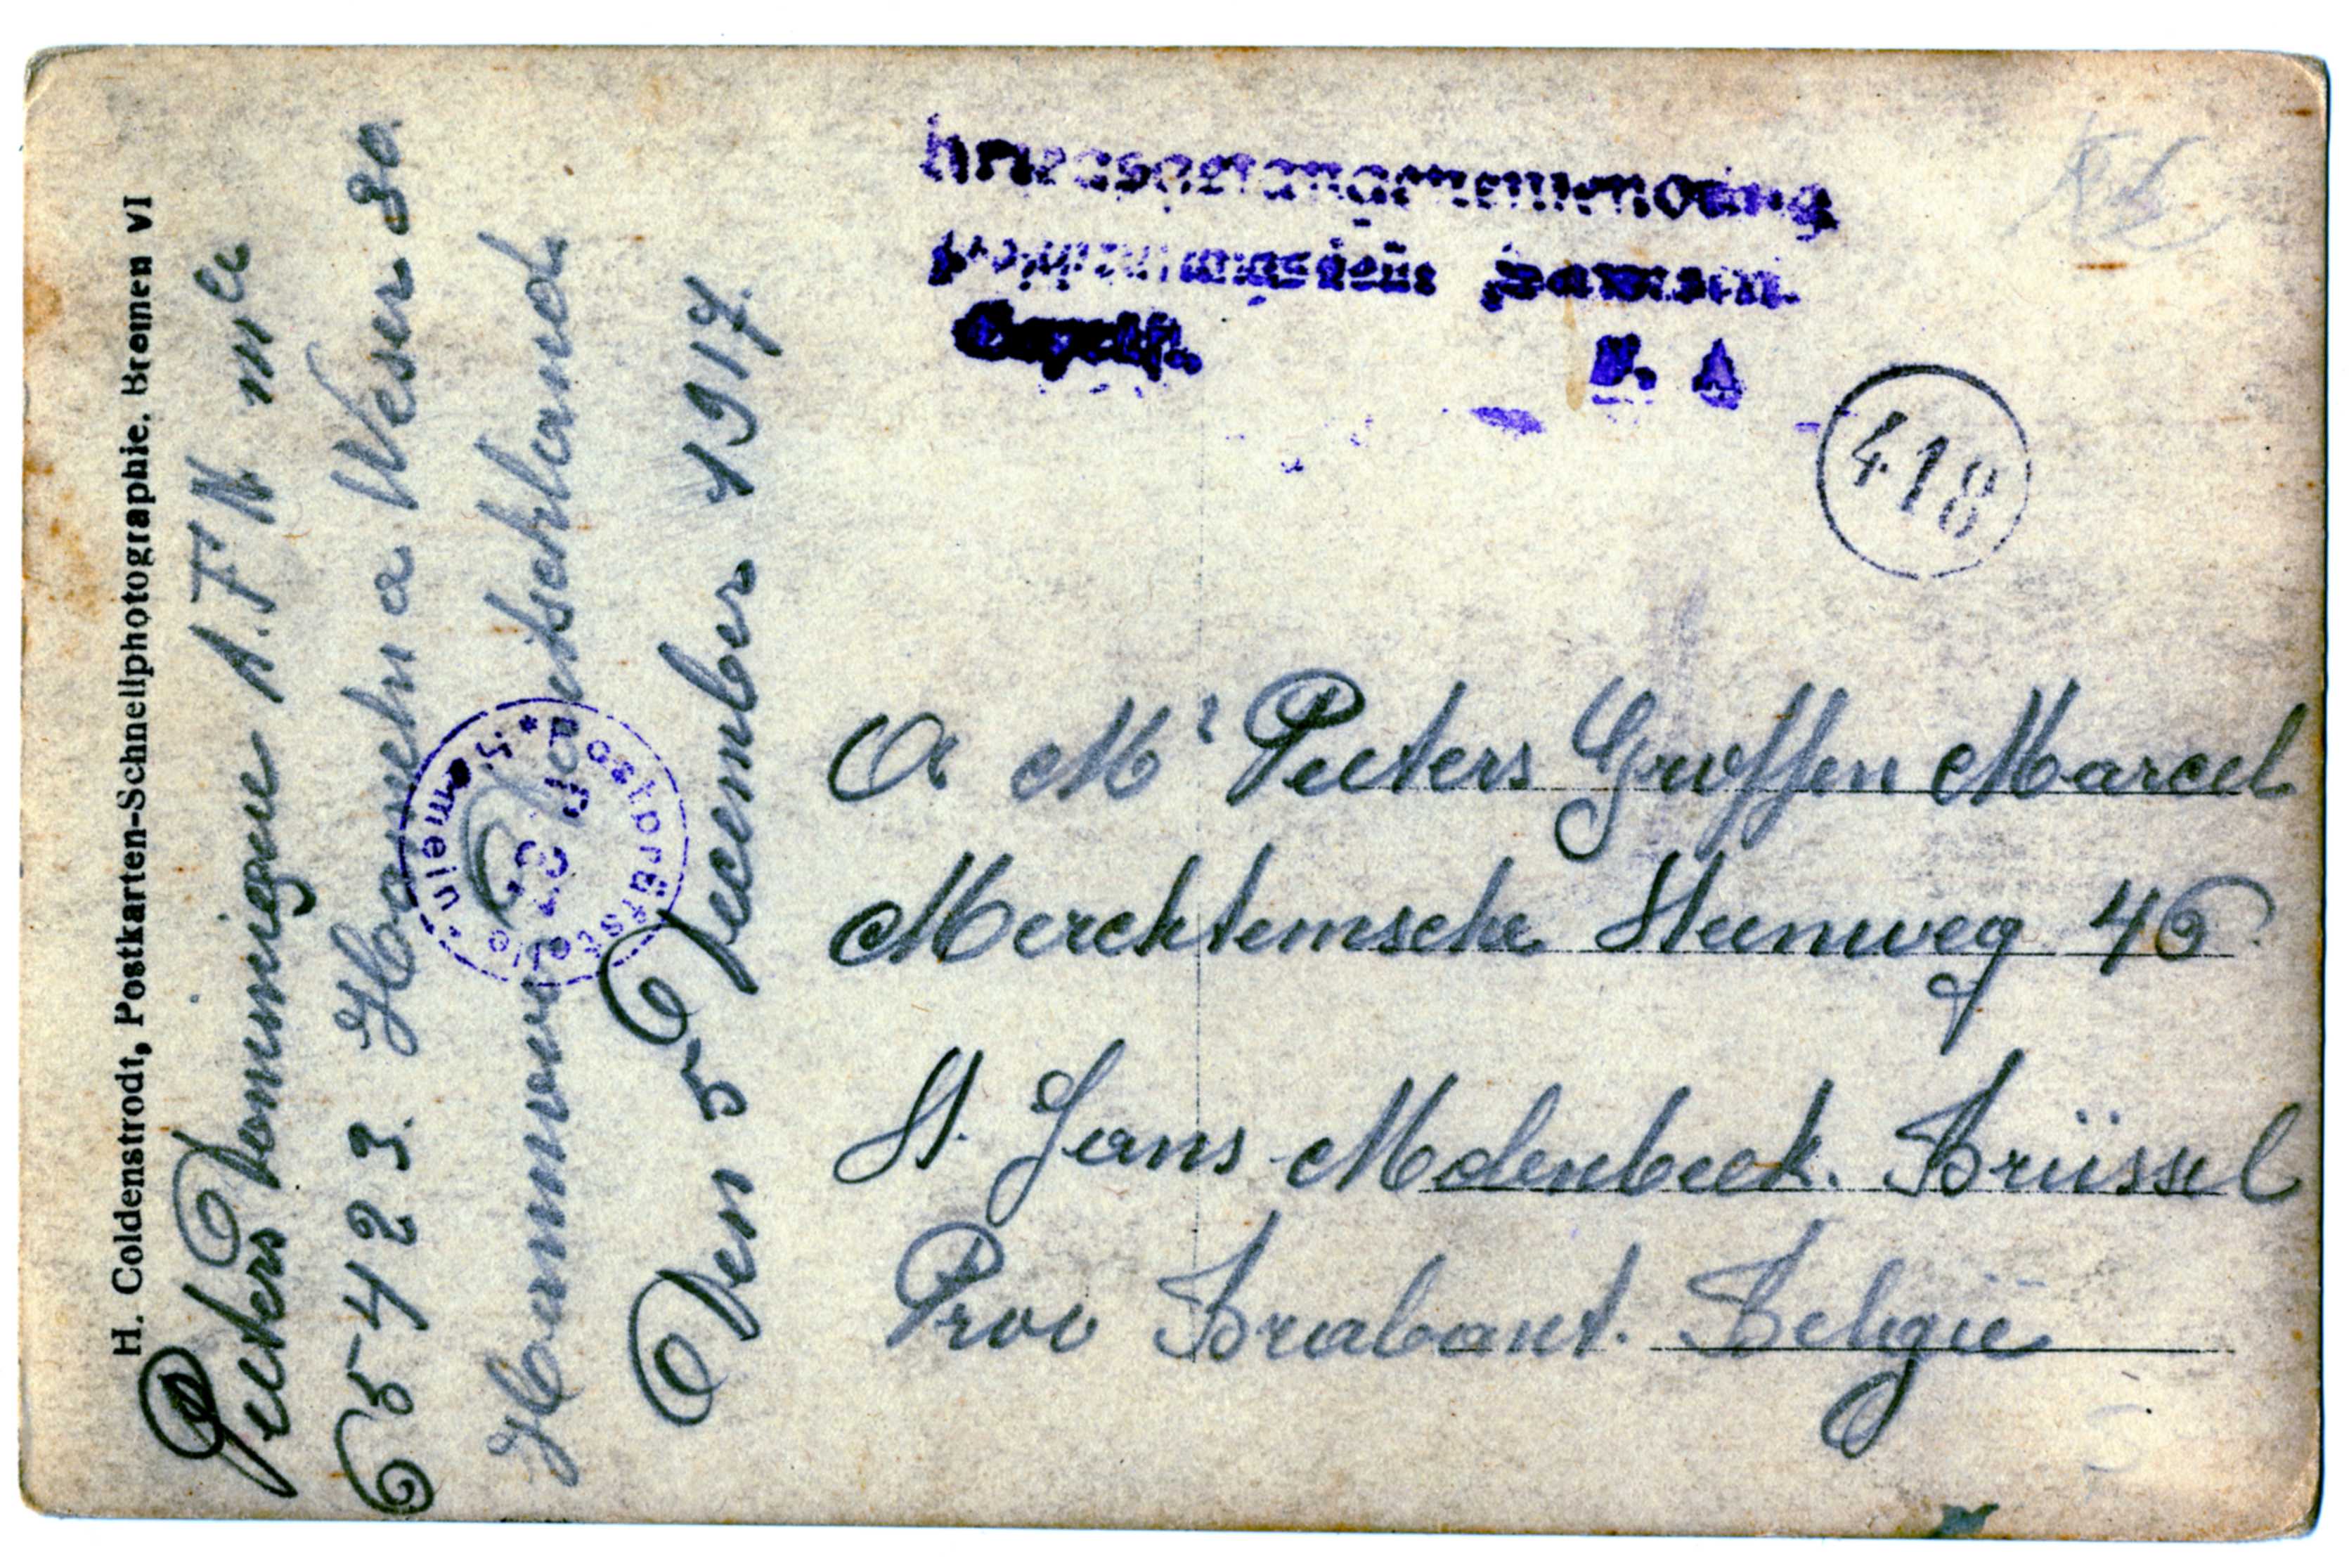 H. Coldenstrodt, Postkarten-Schnellphotographie. Bremen VI
Peeters Dominique A.F.N. mle
65423. Hameln a Weser 80
Hannover Deutschland
Den 5 December 1917.
Postprüfstelle * Hameln
F. A
418
A Mr Peeters Gruffen Marcel
Merchtemsche Steenweg 46
St. Jans Molenbeek. Brüssel
Prov Brabant. België